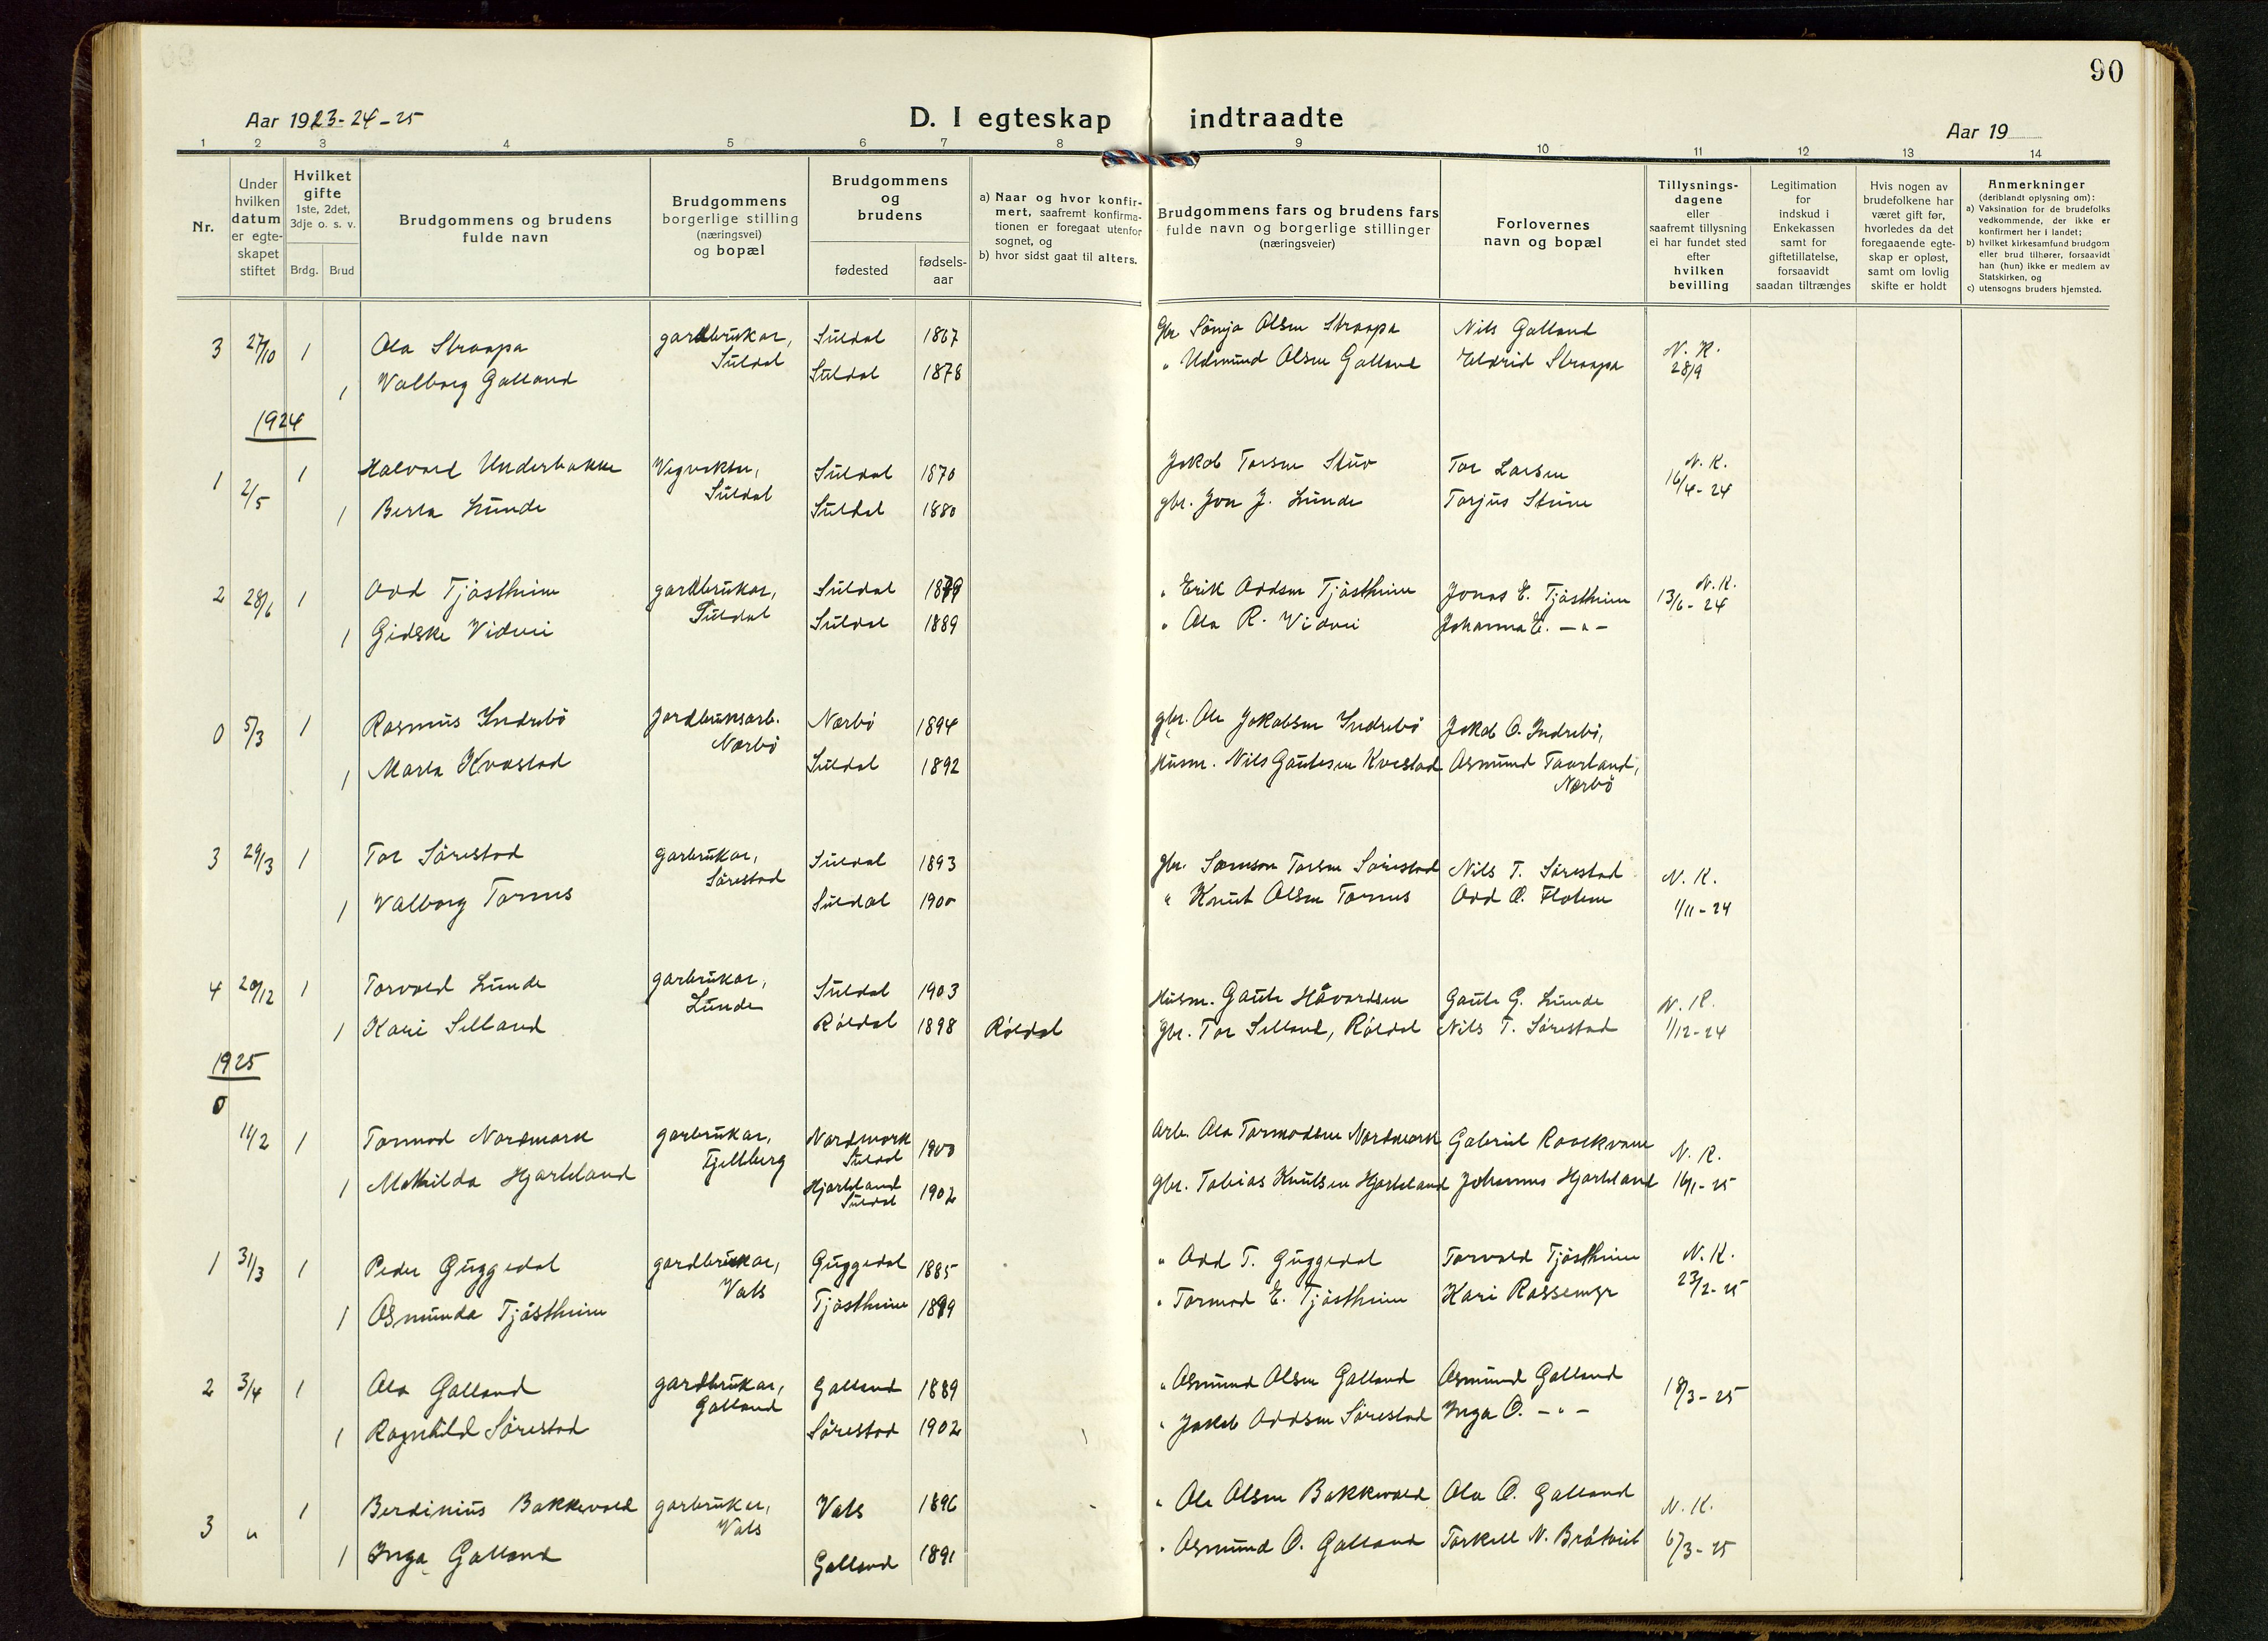 90
Aar 1923-24-25
D. I egteskap indtraadte
Aar 19
1 2 3 4 5 6 7 8 9 10 11 12 13 14
Nr.
Under hvilken datum er egteskapet stiftet
Hvilket gifte 1ste, 2det, 3dje o. s. v.
Brdg. Brud
Brudgommens og brudens fulde navn
Brudgommens borgerlige stilling (næringsvei) og bopæl
Brudgommens og brudens
fødested
fødsels-aar
a) Naar og hvor konfirmert, saafremt konfirmationen er foregaat utenfor sognet, og
b) hvor sidst gaat til alters.
Brudgommens fars og brudens fars fulde navn og borgerlige stillinger (næringsveier)
Forlovernes navn og bopæl
Tillysnings-dagene eller saafremt tillysning ei har fundet sted efter hvilken bevilling
Legitimation for indskud i Enkekassen samt for giftetillatelse, forsaavidt saadan tiltrænges
Hvis nogen av brudefolkene har været gift før, hvorledes da det foregaaende egteskap er opløst, samt om lovlig skifte er holdt
Anmerkninger (deriblandt oplysning om):
a) Vaksination for de brudefolks vedkommende, der ikke er konfirmert her i landet;
b) hvilket kirkesamfund brudgom eller brud tilhører, forsaavidt han (hun) ikke er medlem av Statskirken, og
c) utensogns bruders hjemsted.
3 27/10 1 Ola Straapa gardbrukar, Suldal Suldal 1867 Gbr Sønja Olsen Straapa Nils Galland N. K. 28/9
1 Valborg Galland Suldal 1878 " Udmund Olsen Galland Eldrid Straapa
1924
1 2/5 1 Halvard Underbakke Vegvakter, Suldal Suldal 1870 Jakob Torsen Stuv Tor Larsen N. K. 16/4-24
1 Berta Lunde Suldal 1880 gbr. Jon J. Lunde Torjus Stuve
2 28/6 1 Odd Tjøstheim gardbrukar, Suldal Suldal 1879 " Erik Oddsen Tjøstheim Jonas E. Tjøstheim N. K. 13/6-24
1 Gidske Vidvei Suldal 1889 " Ola R. Vidvei Johanna E. -"-
0 5/3 1 Rasmus Indrebø Jordbruksarb. Nærbø Nærbø 1894 gbr. Ole Jakobsen Indrebø Jakob O. Indrebø,
1 Marta Kvæstad Suldal 1892 Husm. Nils Gautesen Kvæstad Asmund Taarland, Nærbø
3 29/13 1 Tor Sørestad garbrukar, Sørestad Suldal 1893 gbr. Samson Torsen Sørestad Nils T. Sørestad N. K. 1/11-24
1 Valborg Tornes Suldal 1900 " Knut Olsen Tornes Odd O. Floten
4 20/12 1 Torvald Lunde garbrukar, Lunde Suldal 1903 Husm. Gaute Håvardsen Gaute G. Lunde N. K. 1/12-24
1 Kari Selland Røldal 1898 Røldal gbr. Tor Selland, Røldal Nils T. Sørestad
1925
0
11/2 1 Tormod Nordmark garbrukar, Fjellberg Nordmark Suldal 1900 Arb. Ola Tormodsen Nordmark Gabriel Roaldkvam N. K. 16/1-25
1 Mathilda Hjorteland Hjorteland Suldal 1902 gbr. Tobias Knutsen Hjorteland Johannes Hjorteland
1 31/3 1 Peder Guggedal gardbrukar, Vats Guggedal 1885 " Odd T. Guggedal Torvald Tjøstheim N. K. 23/2-25
1 Asmunda Tjøstheim Tjøstheim 1899 " Tormod E. Tjøstheim Kari
2 3/4 1 Ola Galland gardbrukar, Galland Galland 1889 " Asmund Olsen Galland Asmund Galland 18/3-25
1 Ragnhild Sørestad Sørestad 1902 " Jakob Oddsen Sørestad Inga O. -"-
3 " 1 Berdinius Bakkevold garbrukar, Vats Vats 1896 " Ole Olsen Bakkevold Ola O. Galland N. K. 6/3-25
1 Inga Galland Galland 1891 " Asmund O. Galland Torkell N. Bråtveit